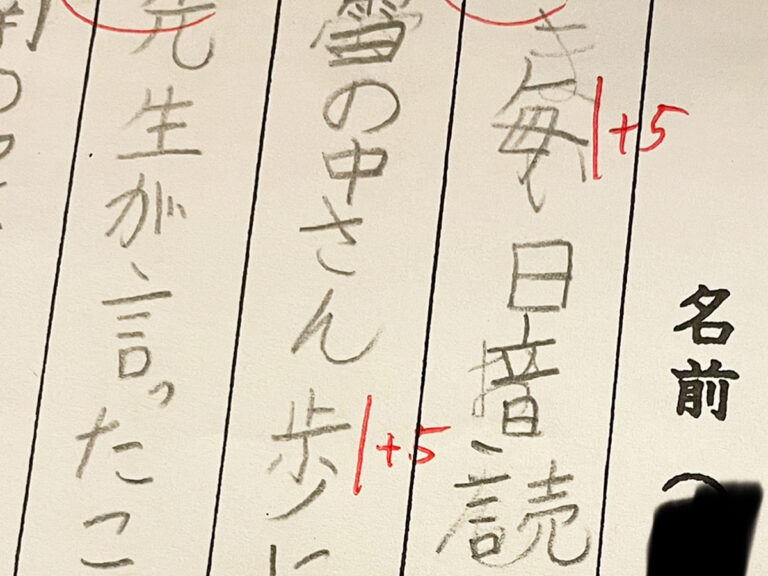 名前（
毎日音読
+5
雪の中さん歩に
+5
先生が言ったこ